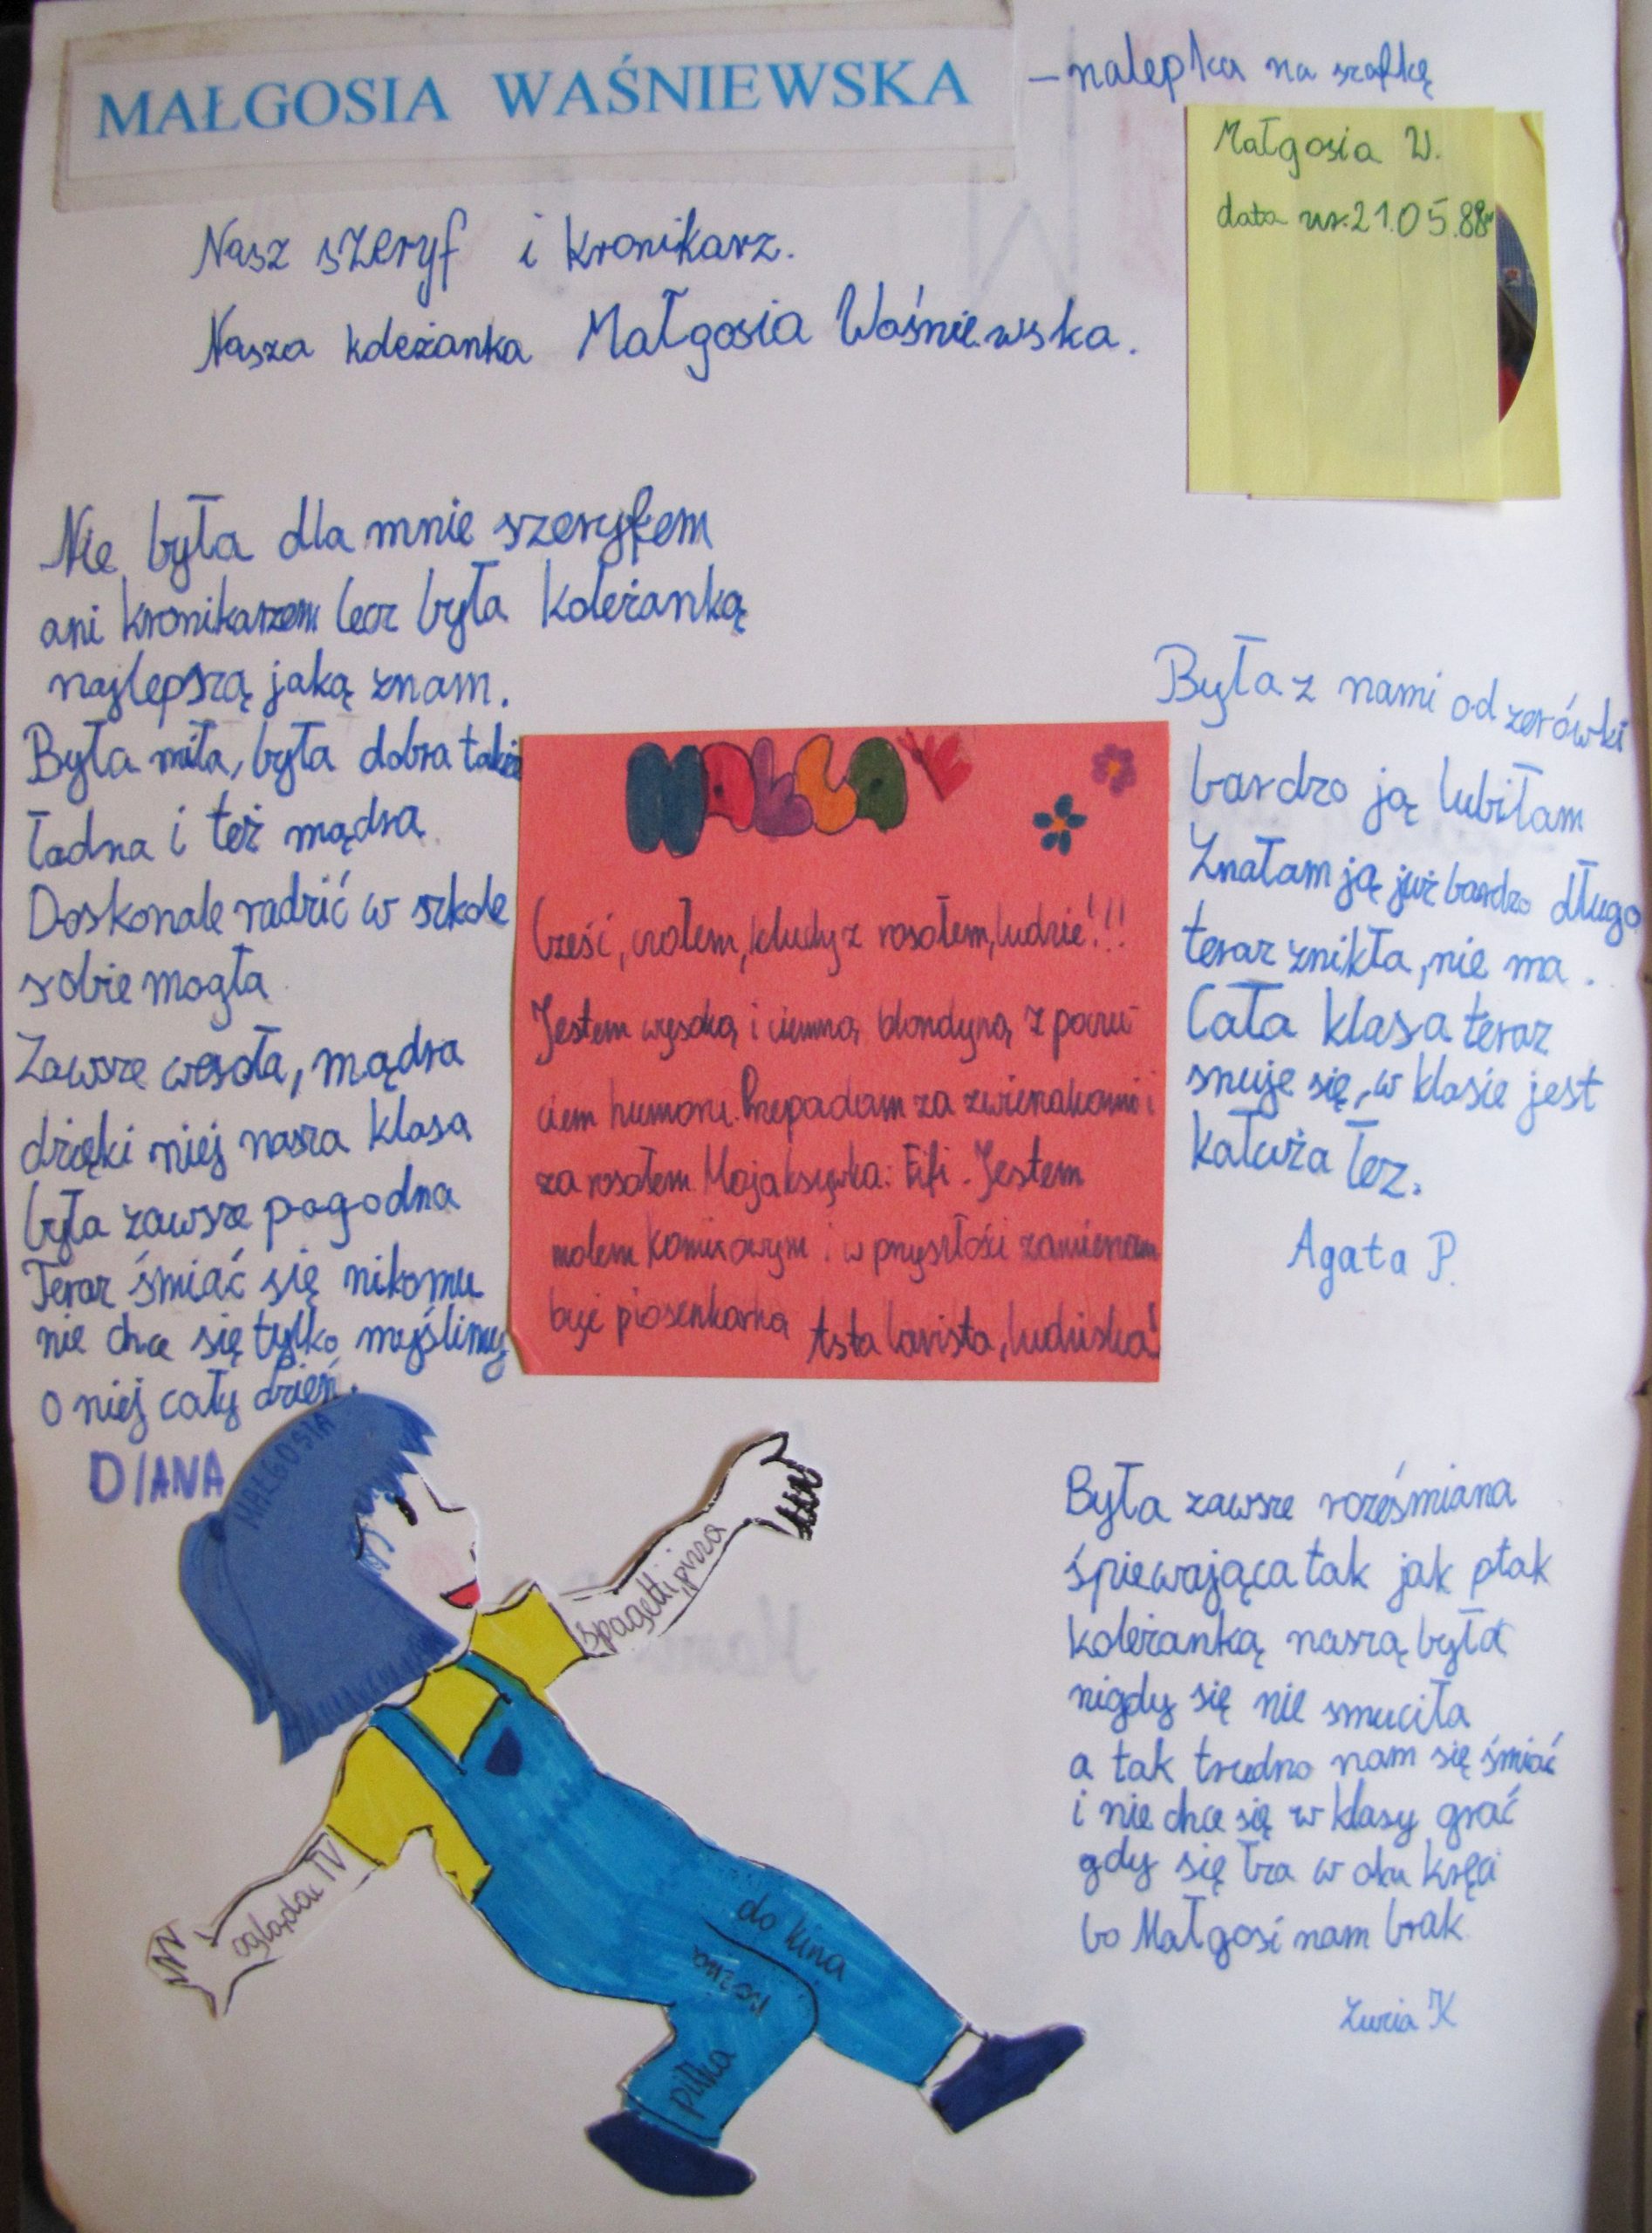 MAŁGOSIA WAŚNIEWSKA
– nalepka na szafkę
Małgosia W.
data ur. 21.05.88
Nasz szeryf i kronikarz.
Nasza koleżanka Małgosia Waśniewska.
Nie była dla mnie szeryfem
ani kronikarzem lecz była koleżanką
najlepszą jaką znam.
Była miła, była dobra także
ładna i też mądra
Doskonale radzić w szkole
sobie mogła
Zawsze wesoła, mądra
dzięki niej nasza klasa
była zawsze pogodna
Teraz śmiać się nikomu
nie chce się tylko myślimy
o niej cały dzień.
DIANA
Cześć, czołem, kluchy z rosołem, ludzie!!!
Jestem wysoką i ciemną blondyną z poczu-
ciem humoru. Przepadam za zwierzakami i
za rosołem. Moja ksywka: Fifi. Jestem
molem komixowym i w przyszłości zamierzam
być piosenkarką Asta lavista, ludziska!
Była z nami od zerówki
bardzo ją lubiłam
Znałam ją już bardzo długo
teraz znikła, nie ma.
Cała klasa teraz
snuje się, w klasie jest
kałuża łez.
Agata P.
Była zawsze roześmiana
śpiewająca tak jak ptak
koleżanką naszą była
nigdy się nie smuciła
a tak trudno nam się śmiać
i nie chce się w klasy grać
gdy się łza w oku kręci
bo Małgosi nam brak
Zuzia K
MAŁGOSIA
spagetti, pizza
oglądać TV
do kina
nożna
piłka